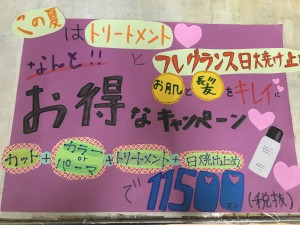 この夏はトリートメント
なんと!! とフレグランス日焼け止め
お肌と髪をキレイに
お得なキャンペーン
カット+カラーorパーマ+トリートメント+日焼け止め
で11500(税抜)